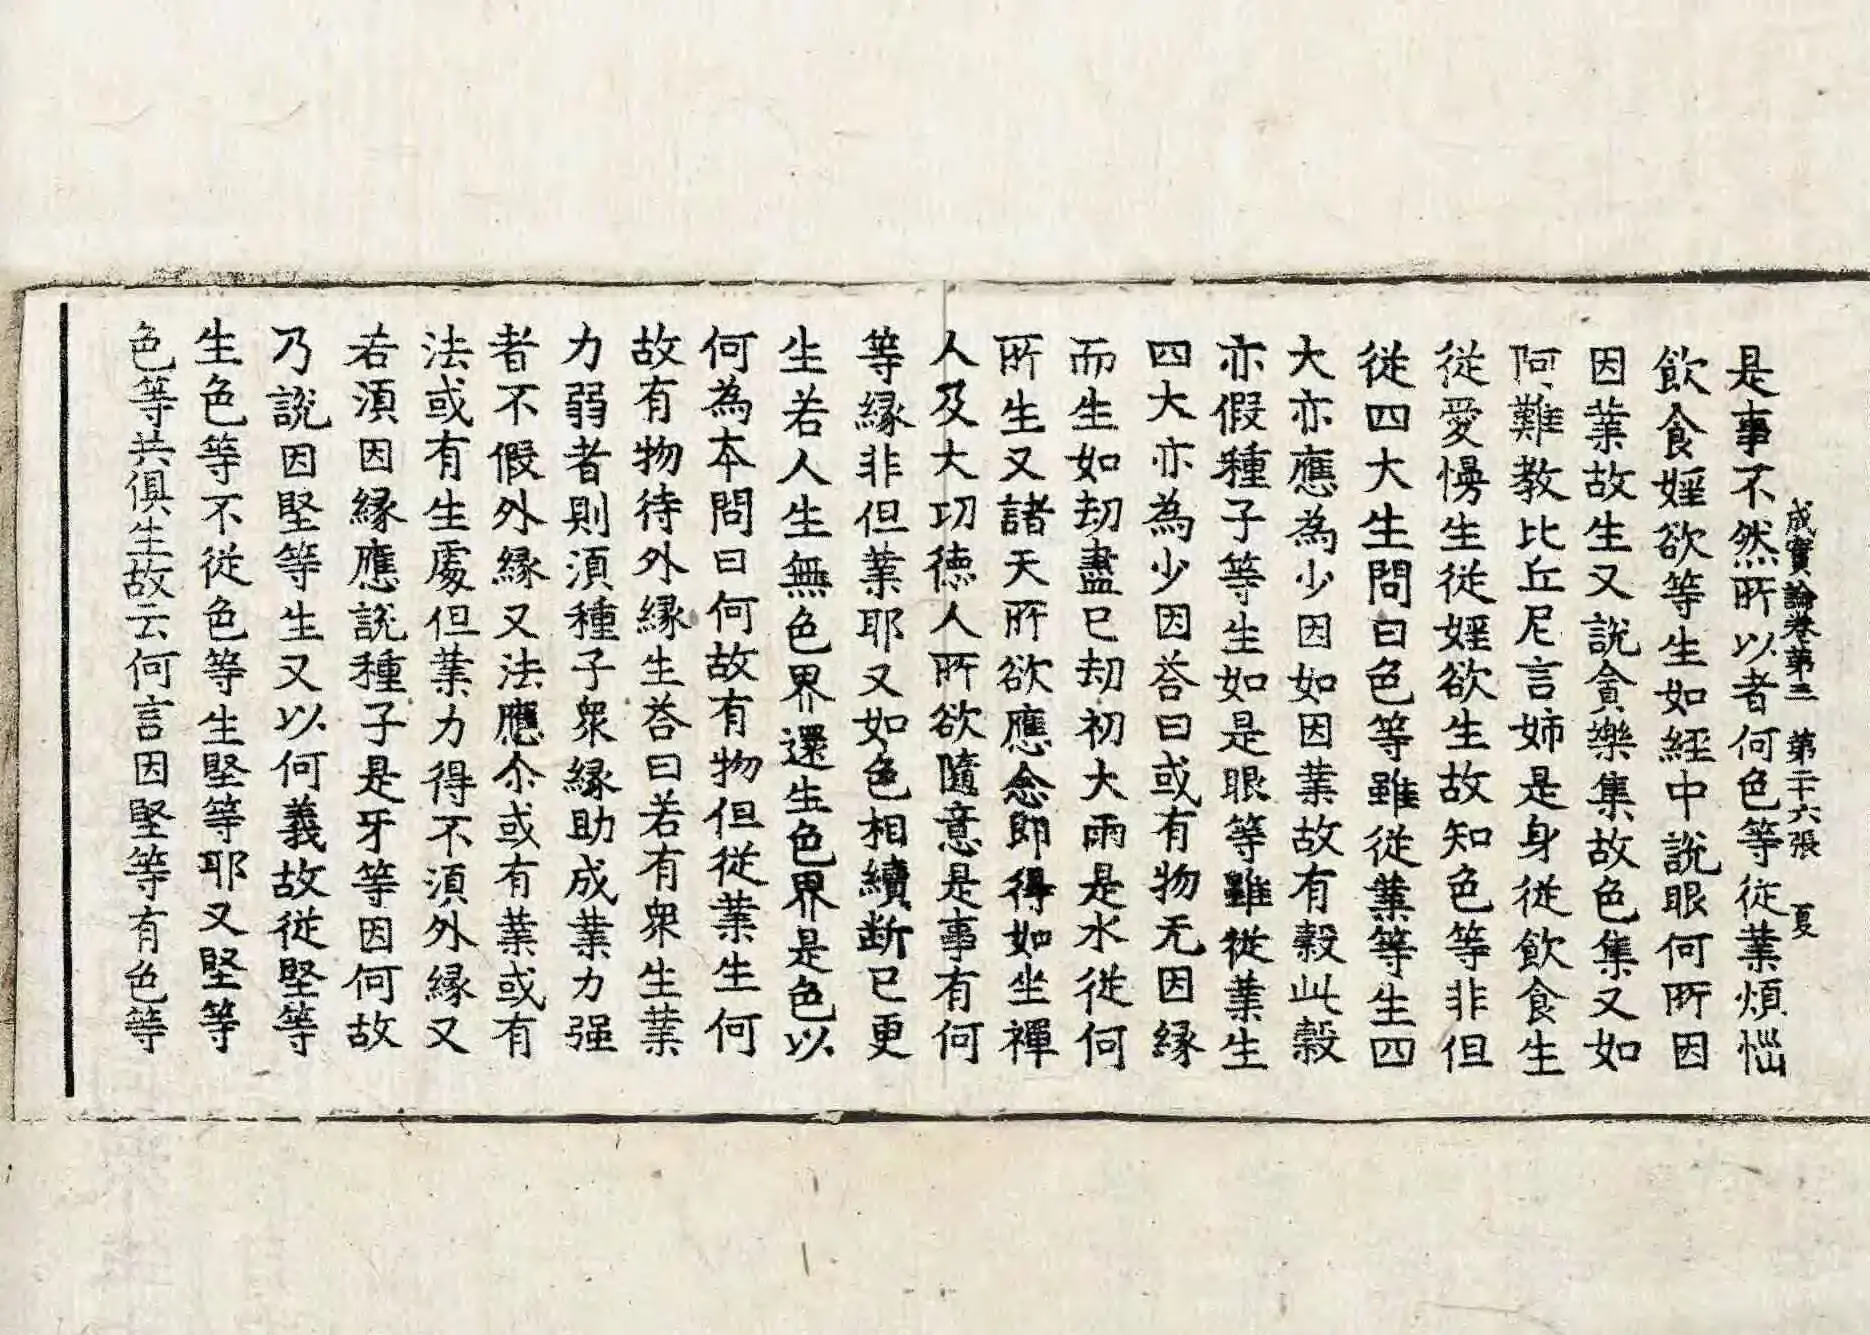 成實論卷第三　第二十六張　夏
是事不然所以者何色等從業煩惱
飲食婬欲等生如經中說眼何所因
因業故生又說貪樂集故色集又如
阿難教比丘尼言姉是身從飲食生
從愛慢生從婬欲生故知色等非但
從四大生問曰色等雖從業等生四
大亦應為少因如因業故有穀此穀
亦假種子等生如是眼等雖從業生
四大亦為少因荅曰或有物无因縁
而生如劫盡已劫初大雨是水從何
所生又諸天所欲應念即得如坐禪
人及大功德人所欲隨意是事有何
等縁非但業耶又如色相續断已更
生若人生無色界還生色界是色以
何為本問曰何故有物但從業生何
故有物待外縁生荅曰若有衆生業
力弱者則須種子衆縁助成業力强
者不假外縁又法應尒或有業或有
法或有生處但業力得不須外縁又
若須因縁應說種子是牙等因何故
乃說因堅等生又以何義故從堅等
生色等不從色等生堅等耶又堅等
色等共俱生故云何言因堅等有色等